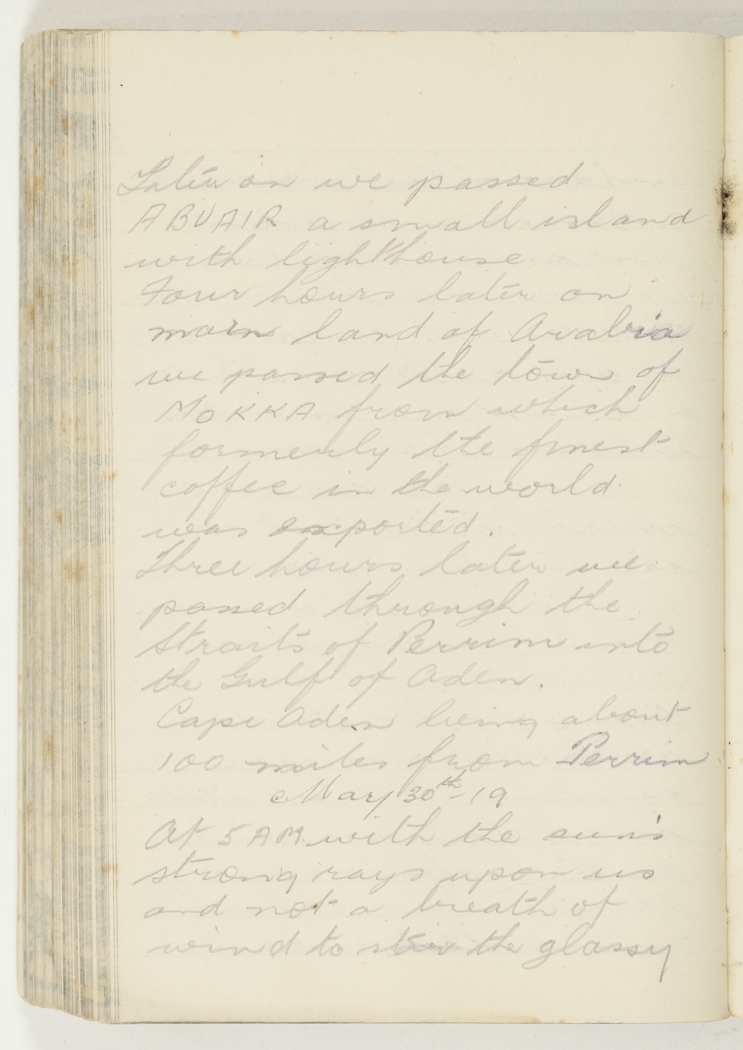 Later on we passed
ABUAIR a small island
with lighthouse
Four hours later on
main land of Arabia
we passed the town of
MOKKA from which
formerly the finest
coffee in the world
was exported.
Three hours later we
passed through the
Straits of Perrim into
the Gulf of Aden.
Cape Aden being about
100 miles from Perrim
May 30th-19
At 5 AM with the sun's
strong rays upon us
and not a breath of
wind to stir the glassy